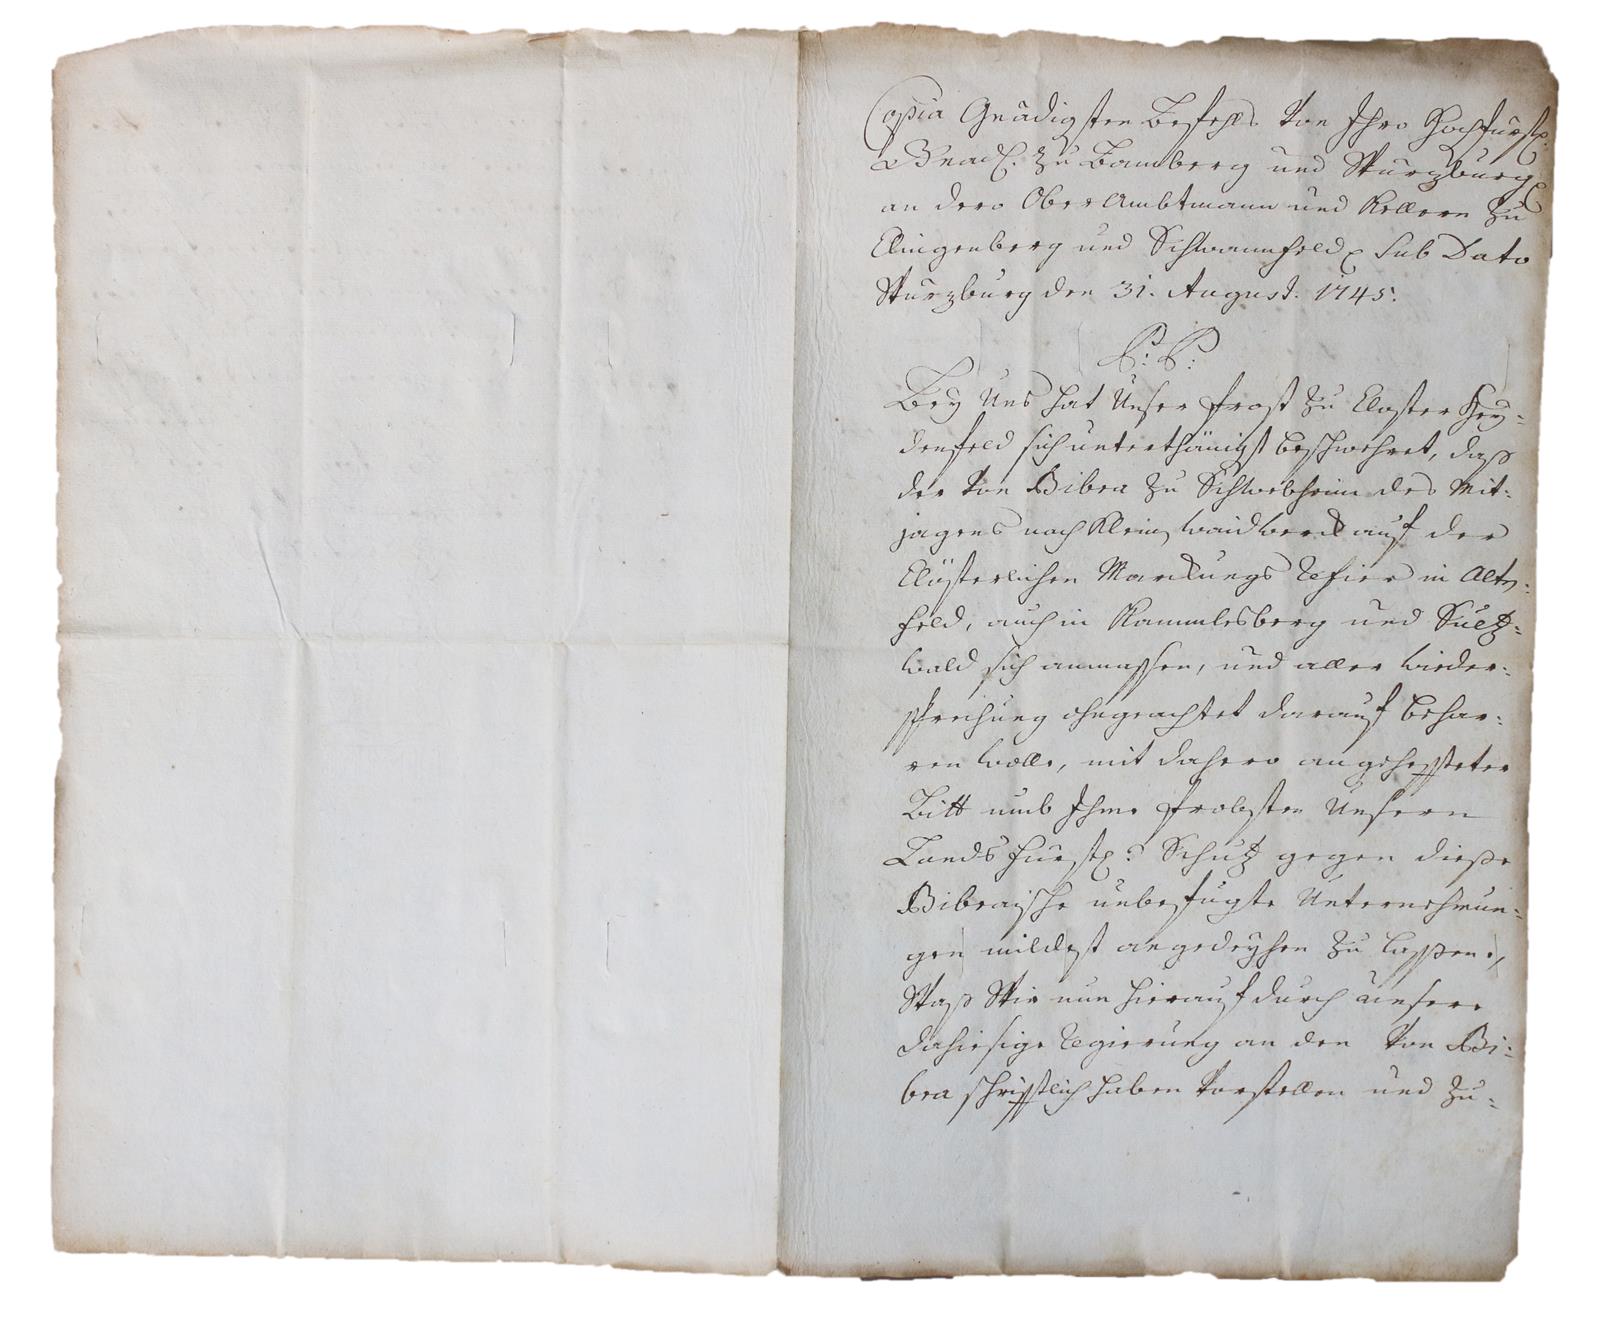 Copia Gnädigsten Befehls Von Ihro Hochfürstl.
Gnad. zu Bamberg und Würzburg
an dero Ober Ambtmann und Kellern zu
Clingenberg und Schwannfeld sub Dato
Würzburg den 31. August. 1745.
P: P:
Bey Uns hat Unser Probst zu Closter Hey=
denfeld sich unterthänigst beschwehret, daß
der von Bibra zu Schwebheim des Mit=
jagens nach Klein waidwerck auf der
Clösterlichen Marckungs Refier in Alten=
feld, auch in Kammlesberg und Sultz=
wald sich anmassen, und aller wieder=
sprechung ohngeachtet darauf behar=
ren wolle, mit dahero angeheffteter
Bitt umb Ihme Probsten Unsern
Landsfürstl. Schutz gegen dieße
Bibraische unbefugte Unternehmun=
gen mildest angedeyhen zu laßen.
Waß Wir nun hierauf durch unsere
dahiesige Regierung an den von Bi=
bra schrifftlich haben vorstellen und zu=